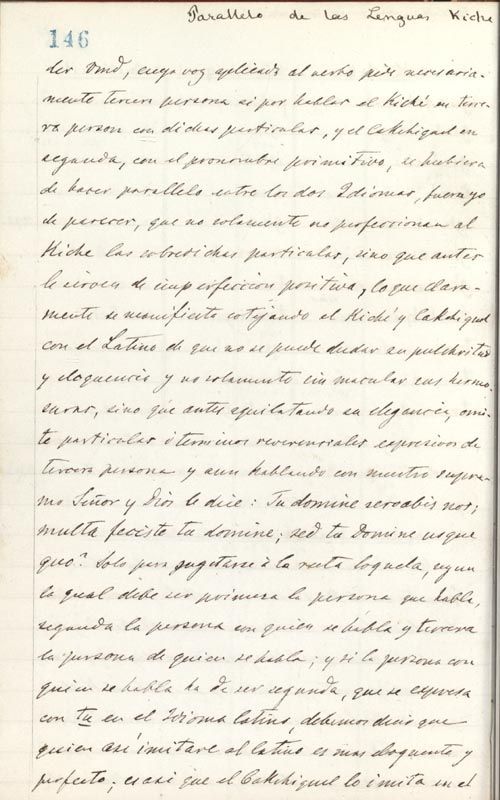 Parallelo de las Lenguas Kiche
146
der Vmd, cuya voz aplicada al verbo pide necesaria-
mente tercera persona si por hablar el Kiché en terce-
ra person con dichas particulas, y el Cakchiquel en
segunda, con el pronombre primitivo, se hubiera
de hacer parallelo entre los dos Idiomas, fuera yo
de parecer, que no solamente no perfeccionan al
Kiche las sobredichas particulas, sino que antes
le sirven de imperfeccion positiva, lo que clara-
mente se manifiesta cotejando el Kiché y Cakchiquel
con el Latino de que no se puede dudar su pulchritud
y eloquencia y no solamente sin macular sus hermo-
suras, sino que antes aquilatando su elegancia, omi-
te particulas ó terminos reverenciales expresivos de
tercera persona y aun hablando con nuestro supre-
mo Señor y Dios le dice: Tu domine servabis nos;
multa feciste tu domine; sed tu Domine usque
quo? Solo para sugetarse á la recta loquela, segun
la qual debe ser primera la persona que habla,
segunda la persona con quien se habla y tercera
la persona de quien se habla; y si la persona con
quien se habla ha de ser segunda, que se expresa
con tu en el Idioma latino, debemos decir que
quien asi imitare al latino es mas eloquente y
perfecto; es asi que el Cakchiquel lo imita en el